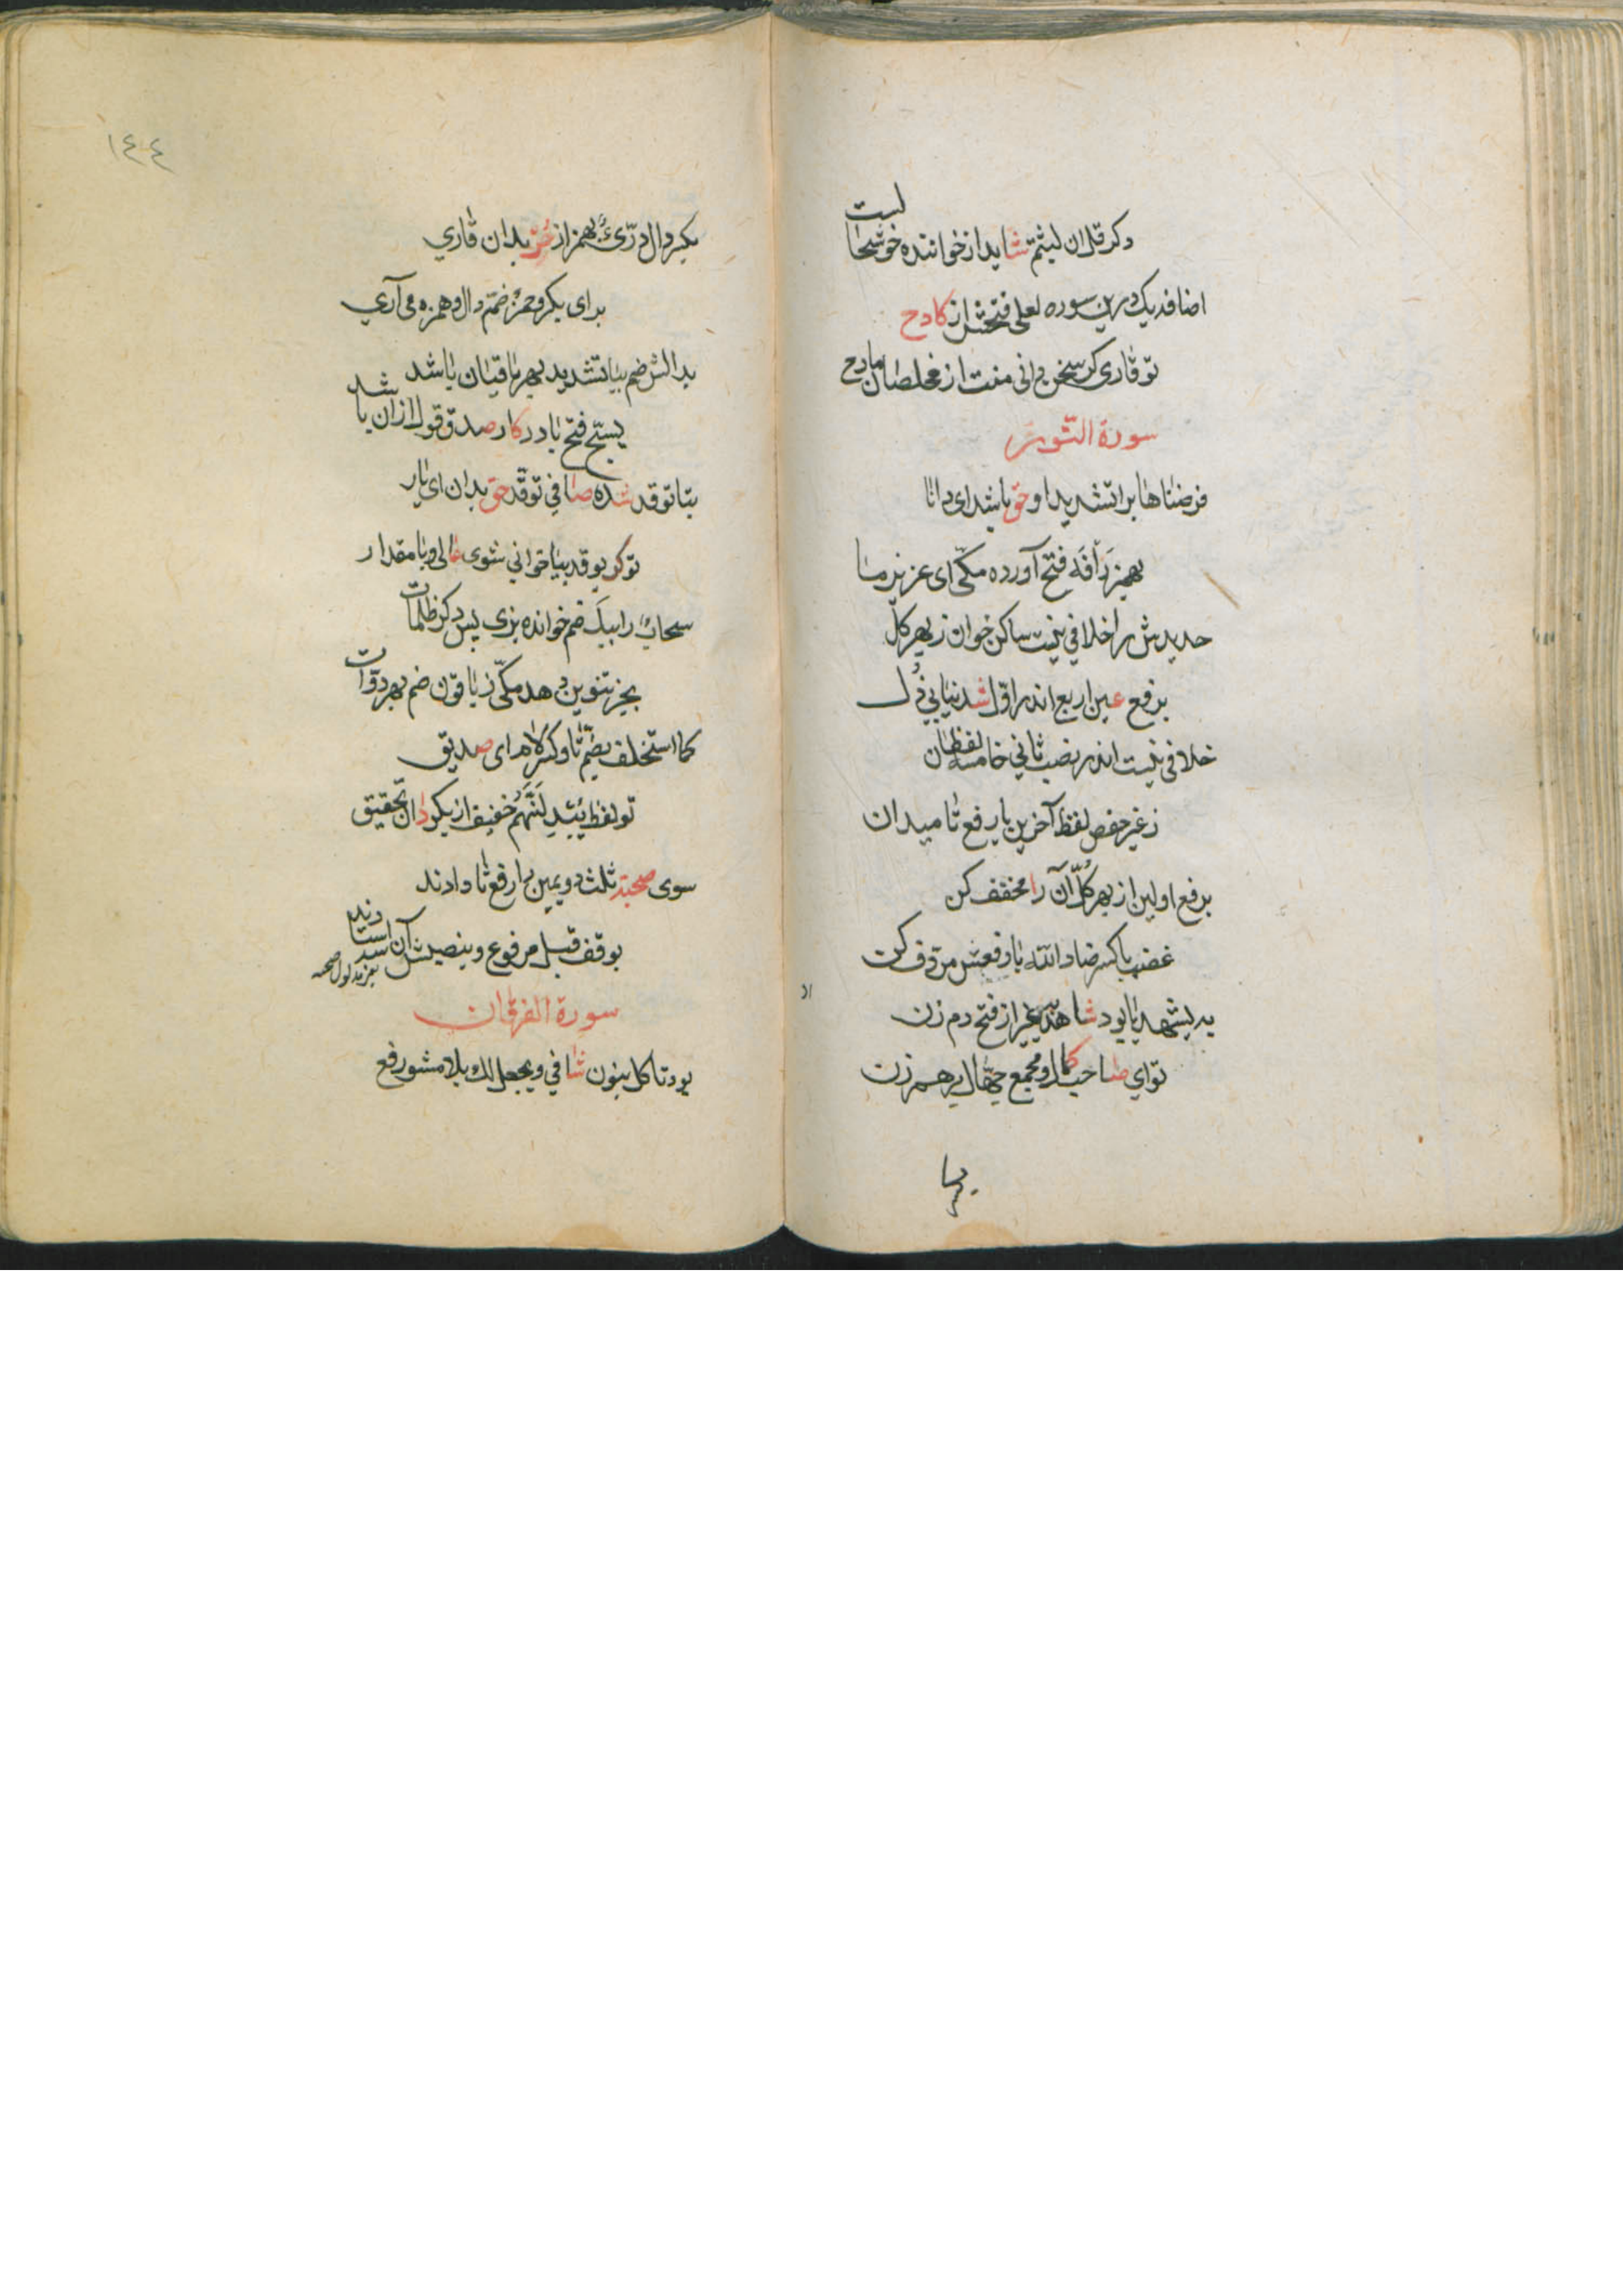 دکر قل ان لبثتم شاید از خواننده خوشحالیست
اضافه یک درین سوره لعلی فتحش از کادح
تو قاری کر سخن دانی منت از مخلصان مادح
سورة النور
فرضناها برا تشدید او حق باشد ای دانا
بهمز رأفه فتح آورده مکّی ای عزیز ما
حدیدش را خلافی نیست ساکن خوان ز بهر کل
برفع عین اربع اندر اوّل شد نیابی ذل
خلافی نیست اندر نصب ثانی خامسه لفظان
ز غیر حفص لفظ آخرین با رفع تا میدان
برفع اولین از بهر کلّ آن را مخفف کن
غضبها کسر ضاد الله با رفعش مردّف کن
به یشهد یا بود شاهد غیر از فتح دم زن
تو ای صاحب کمال و مجمع جهّال برهم زن
بکسر دال درّیء بهمز از حُز بدان قاری
برای بکر و حمزه ضمّ دال و همزه می آری
بدالش ضم بیا تشدید بهر باقیان باشد
یسبّح فتح با در کار صدق قول ازان باشد
بتا توقد شده صافی توقّد حق بدان ای یار
تو کر یوقد بیا خوانی شوی عالی و با مقدار
سحابٌ را بیک ضم خوانده بزی پس دکر ظلمات
بجر تنوین دهد مکّی ز باقون ضم بهر دوّات
کما استخلف بضمّ تا و کسر لام ای صدیق
تو لفظ یُبدِلَنَّهُم خفیف از بکر دان تحقیق
سوی صحبته ثلث دویمین را رفع ثا دادند
بوقف قبل مرفوع و بنصبش آن استادند
سورة الفرقان
بود تاکل بنون شافی و یجعل لک بلامش رفع
١٤٤